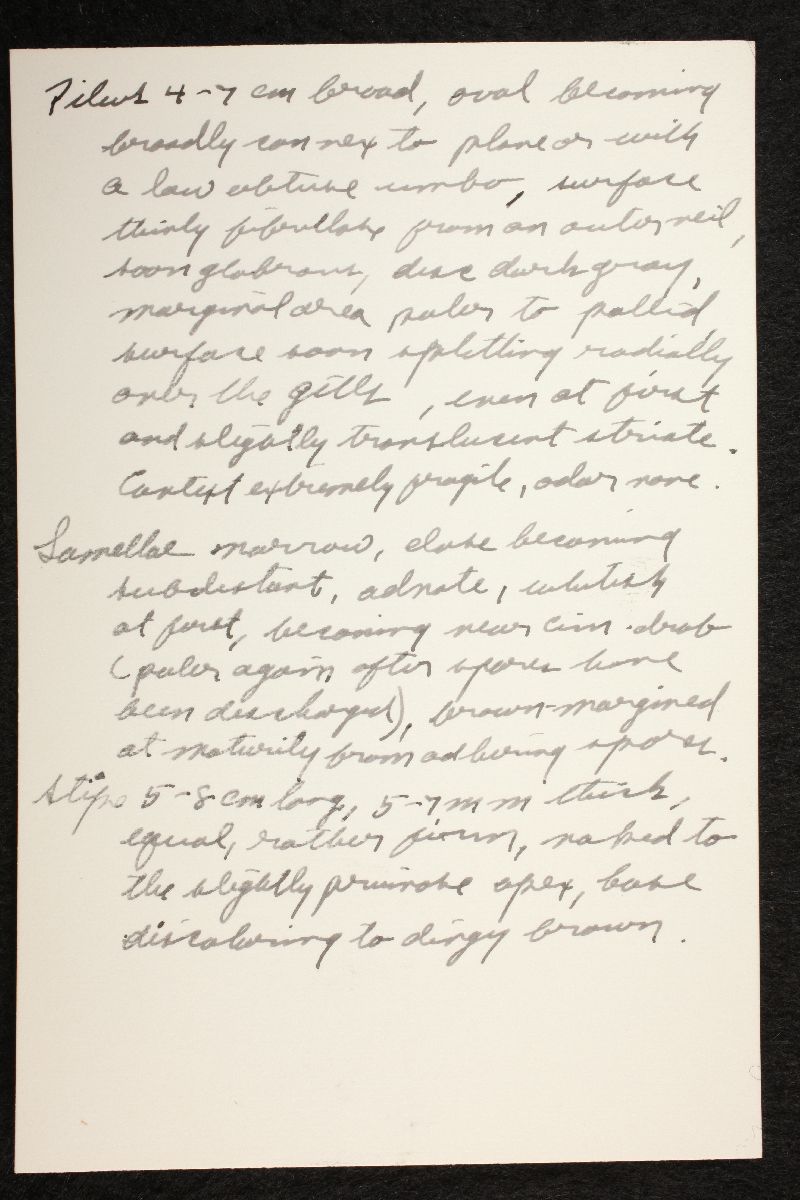 Pileus 4-7 cm broad, oval becoming
broadly convex to plane or with
a low obtuse umbo, surface
thinly fibrillose from an outer veil,
soon glabrous, disc dark gray,
marginal area paler to pallid,
surface soon splitting radially
over the gills, even at first
and slightly translucent striate.
Context extremely fragile, odor none.
Lamellae narrow, close becoming
subdistant, adnate, whitish
at first, becoming near cin. drab
(paler again after spores have
been discharged), brown-margined
at maturity from adhering spores.
Stipe 5-8 cm long, 5-7 mm thick,
equal, rather firm, naked to
the slightly pruinose apex, base
discoloring to dingy brown.